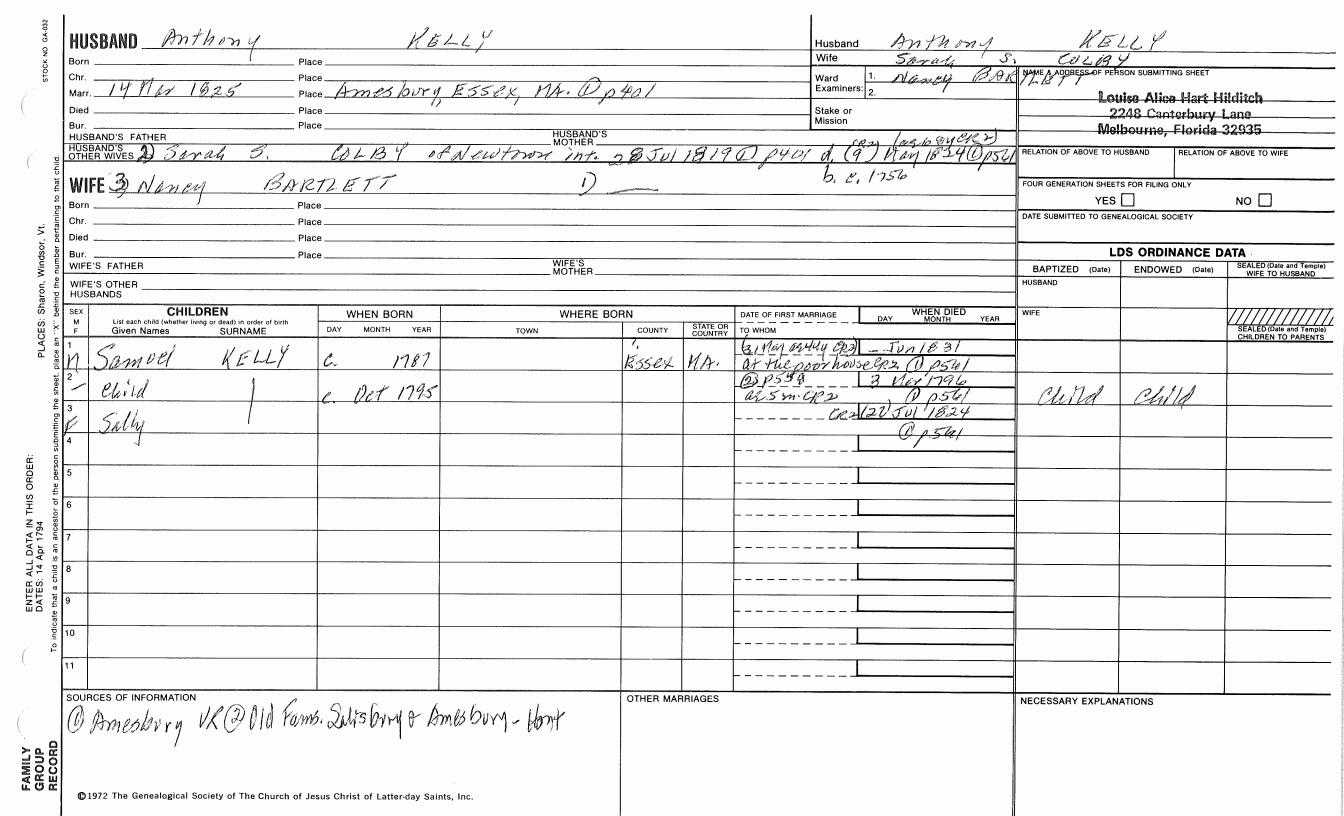 STOCK NO. GA-032
PLACES: Sharon, Windsor, Vt.
ENTER ALL DATA IN THIS ORDER:
DATES: 14 Apr 1794
To indicate that a child is an ancestor of the person submitting the sheet, place an "X" behind the number pertaining to that child.
FAMILY GROUP RECORD
HUSBAND Anthony KELLY
Born Place
Chr. Place
Marr. 14 Mar 1825 Place Amesbury, Essex, MA. ① p401
Died Place
Bur. Place
HUSBAND'S FATHER HUSBAND'S MOTHER
HUSBAND'S OTHER WIVES 2) Sarah S. COLBY of Newtown int. 28 Jul 1819 ① p401 d. (9) May 1824 ① p561
b. c. 1756
WIFE 3) Nancy BARTLETT 1) ___
Born Place
Chr. Place
Died Place
Bur. Place
WIFE'S FATHER WIFE'S MOTHER
WIFE'S OTHER HUSBANDS
Husband Anthony KELLY
Wife Sarah S. COLBY
Ward Examiners: 1. Nancy BARTLETT
2.
Stake or Mission
NAME & ADDRESS OF PERSON SUBMITTING SHEET
Louise Alice Hart Hilditch
2248 Canterbury Lane
Melbourne, Florida 32935
RELATION OF ABOVE TO HUSBAND RELATION OF ABOVE TO WIFE
FOUR GENERATION SHEETS FOR FILING ONLY
YES NO
DATE SUBMITTED TO GENEALOGICAL SOCIETY
LDS ORDINANCE DATA
BAPTIZED (Date) ENDOWED (Date) SEALED (Date and Temple) WIFE TO HUSBAND
HUSBAND
WIFE
SEALED (Date and Temple) CHILDREN TO PARENTS
SEX M F
CHILDREN
List each child (whether living or dead) in order of birth
Given Names SURNAME
WHEN BORN
DAY MONTH YEAR
WHERE BORN
TOWN COUNTY STATE OR COUNTRY
DATE OF FIRST MARRIAGE
TO WHOM
WHEN DIED
DAY MONTH YEAR
1 Samuel KELLY c. 1787 Essex MA. Jun 1831
at the poorhouse CR2 ① p561
2 Child c. Oct 1795 3 Mar 1796
ae 5 m. CR2 ① p561
Child Child
3 F Sally CR2 (22) Jul 1824
① p561
4
5
6
7
8
9
10
11
SOURCES OF INFORMATION
① Amesbury VR ② Old Fams. Salisbury & Amesbury - Hoyt
OTHER MARRIAGES
NECESSARY EXPLANATIONS
©1972 The Genealogical Society of The Church of Jesus Christ of Latter-day Saints, Inc.